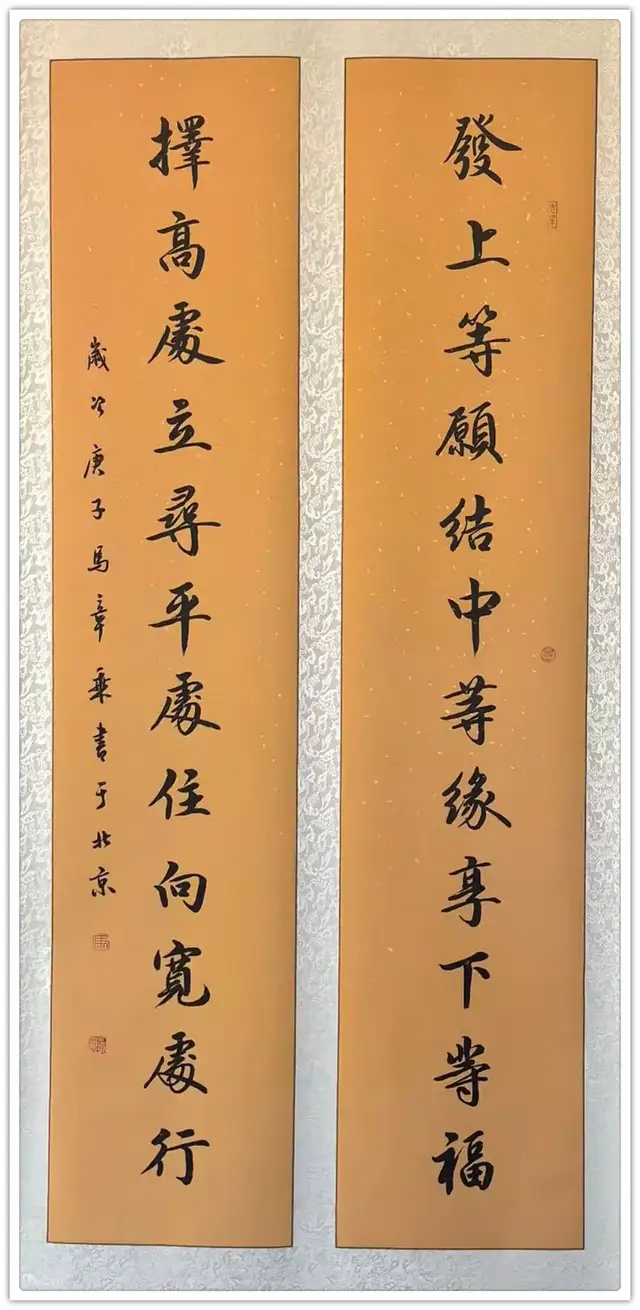 發上等願結中等緣享下等福
擇高處立尋平處住向寬處行
歲次庚子馬章乘書于北京